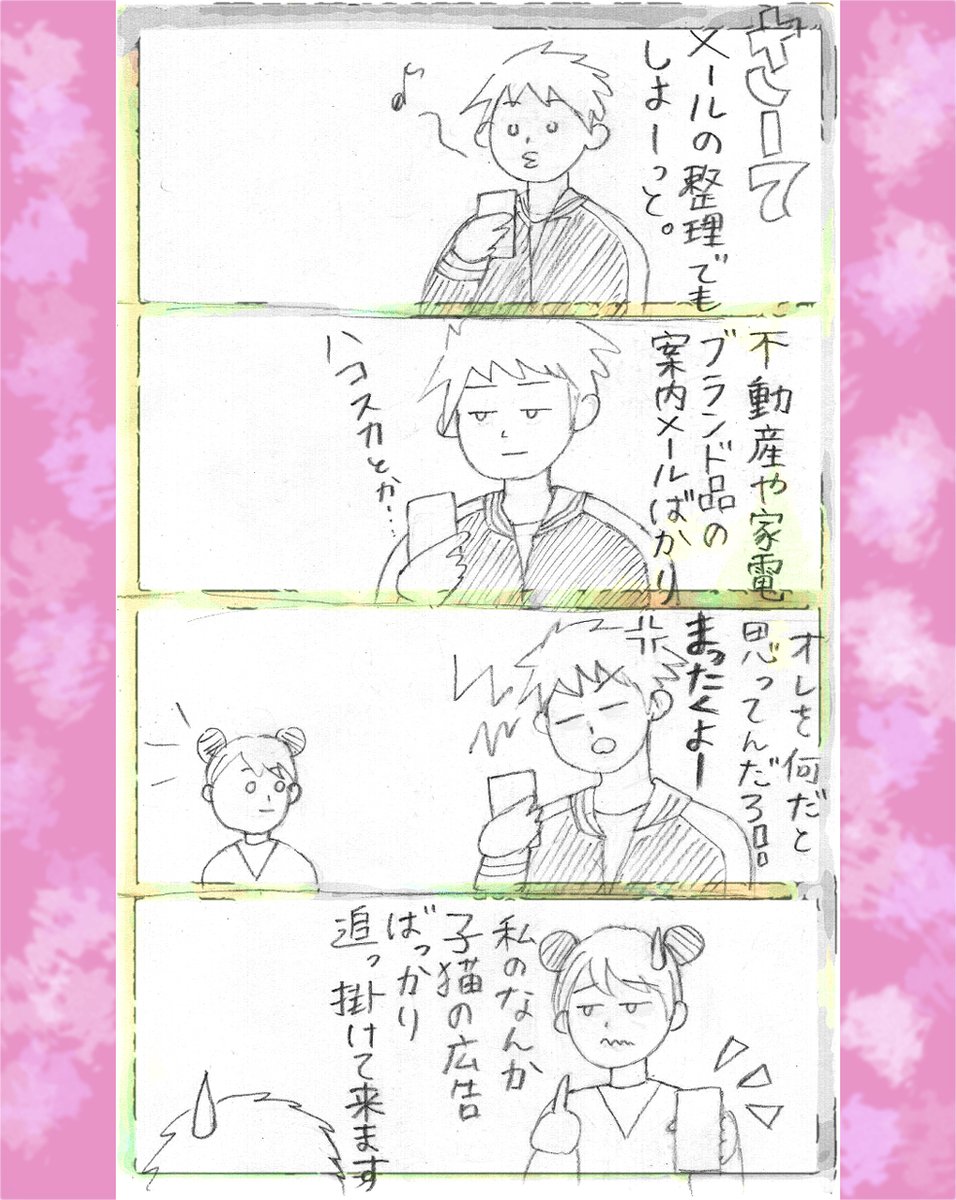 さーて
メールの整理でも
しよーっと。
不動産や家電
ブランド品の
案内メールばかり
ハコスカとか…
オレを何だと
思ってんだろ
まったくよー
私のなんか
子猫の広告
ばっかり
追っ掛けて来ます